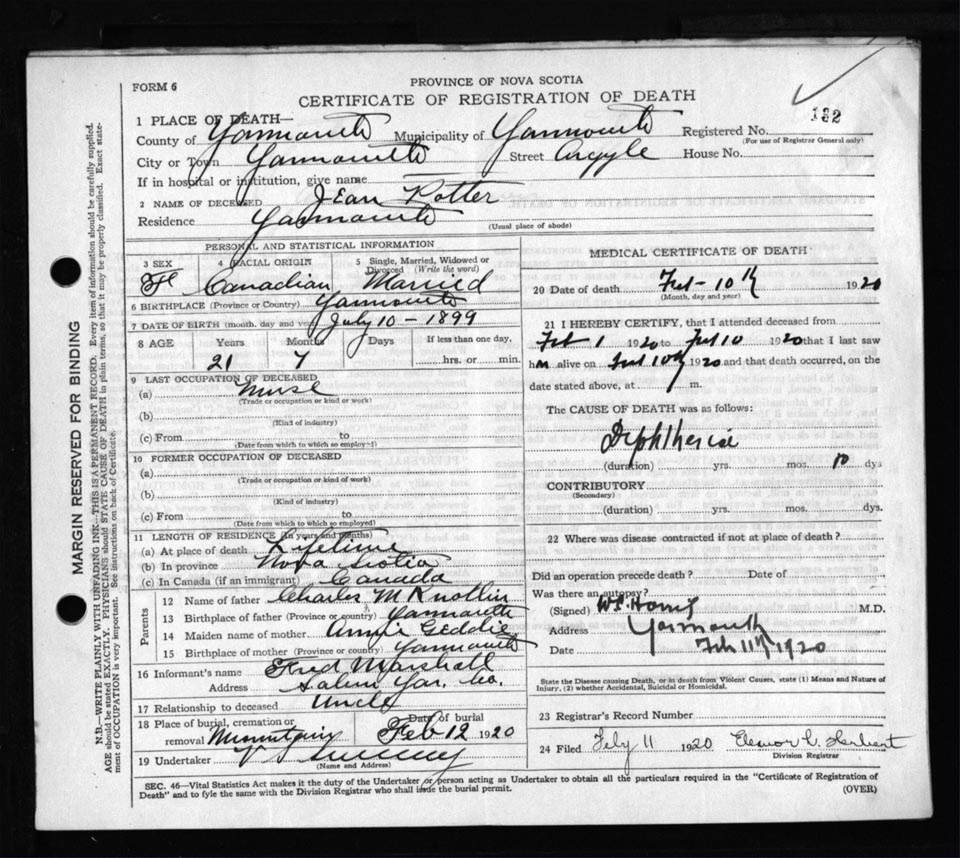 FORM 6
PROVINCE OF NOVA SCOTIA
CERTIFICATE OF REGISTRATION OF DEATH
132
1 PLACE OF DEATH—
County of Yarmouth Municipality of Yarmouth Registered No.
(For use of Registrar General only)
City or Town Yarmouth Street Argyle House No.
If in hospital or institution, give name
2 NAME OF DECEASED Jean Potter
Residence Yarmouth
(Usual place of abode)
PERSONAL AND STATISTICAL INFORMATION
3 SEX 4 RACIAL ORIGIN 5 Single, Married, Widowed or Divorced (Write the word)
F Canadian Married
6 BIRTHPLACE (Province or Country) Yarmouth
7 DATE OF BIRTH (month, day and year) July 10 - 1899
8 AGE Years Months Days If less than one day,
21 7 hrs. or min.
9 LAST OCCUPATION OF DECEASED
(a) Nurse
(Trade or occupation or kind or work)
(b)
(Kind of industry)
(c) From to
(Date from which to which so employed)
10 FORMER OCCUPATION OF DECEASED
(a)
(Trade or occupation or kind of work)
(b)
(Kind of industry)
(c) From to
(Date from which to which so employed)
11 LENGTH OF RESIDENCE (In years and months)
(a) At place of death Lifetime
(b) In province Nova Scotia
(c) In Canada (if an immigrant) Canada
Parents
12 Name of father Charles
13 Birthplace of father (Province or country) Yarmouth
14 Maiden name of mother Annie Geddie
15 Birthplace of mother (Province or country) Yarmouth
16 Informant's name Fred Marshall
Address Salem Yar. Co.
17 Relationship to deceased Uncle
18 Place of burial, cremation or Date of burial
removal Feb 12 1920
19 Undertaker
(Name and Address)
MEDICAL CERTIFICATE OF DEATH
20 Date of death Feb - 10th 1920
(Month, day and year)
21 I HEREBY CERTIFY, that I attended deceased from
Feb 1 1920 to Feb 10 1920 that I last saw
h alive on Feb 10th 1920 and that death occurred, on the
date stated above, at m.
The CAUSE OF DEATH was as follows:
Diphtheria
(duration) yrs. mos. 10 dys
CONTRIBUTORY
(Secondary)
(duration) yrs. mos. dys.
22 Where was disease contracted if not at place of death?
Did an operation precede death? Date of
Was there an autopsy?
(Signed) M.D.
Address Yarmouth
Date Feb 11th 1920
State the Disease causing Death, or in death from Violent Causes, state (1) Means and Nature of
Injury, (2) whether Accidental, Suicidal or Homicidal.
23 Registrar's Record Number
24 Filed Feby 11 1920 Herbert
Division Registrar
SEC. 46—Vital Statistics Act makes it the duty of the Undertaker or person acting as Undertaker to obtain all the particulars required in the "Certificate of Registration of
Death" and to fyle the same with the Division Registrar who shall issue the burial permit. (OVER)
MARGIN RESERVED FOR BINDING
N.B.—WRITE PLAINLY WITH UNFADING INK—THIS IS A PERMANENT RECORD. Every item of information should be carefully supplied.
AGE should be stated EXACTLY. PHYSICIANS should STATE CAUSE OF DEATH in plain terms, so that it may be properly classified. Exact state-
ment of OCCUPATION is very important. See instructions on back of Certificate.